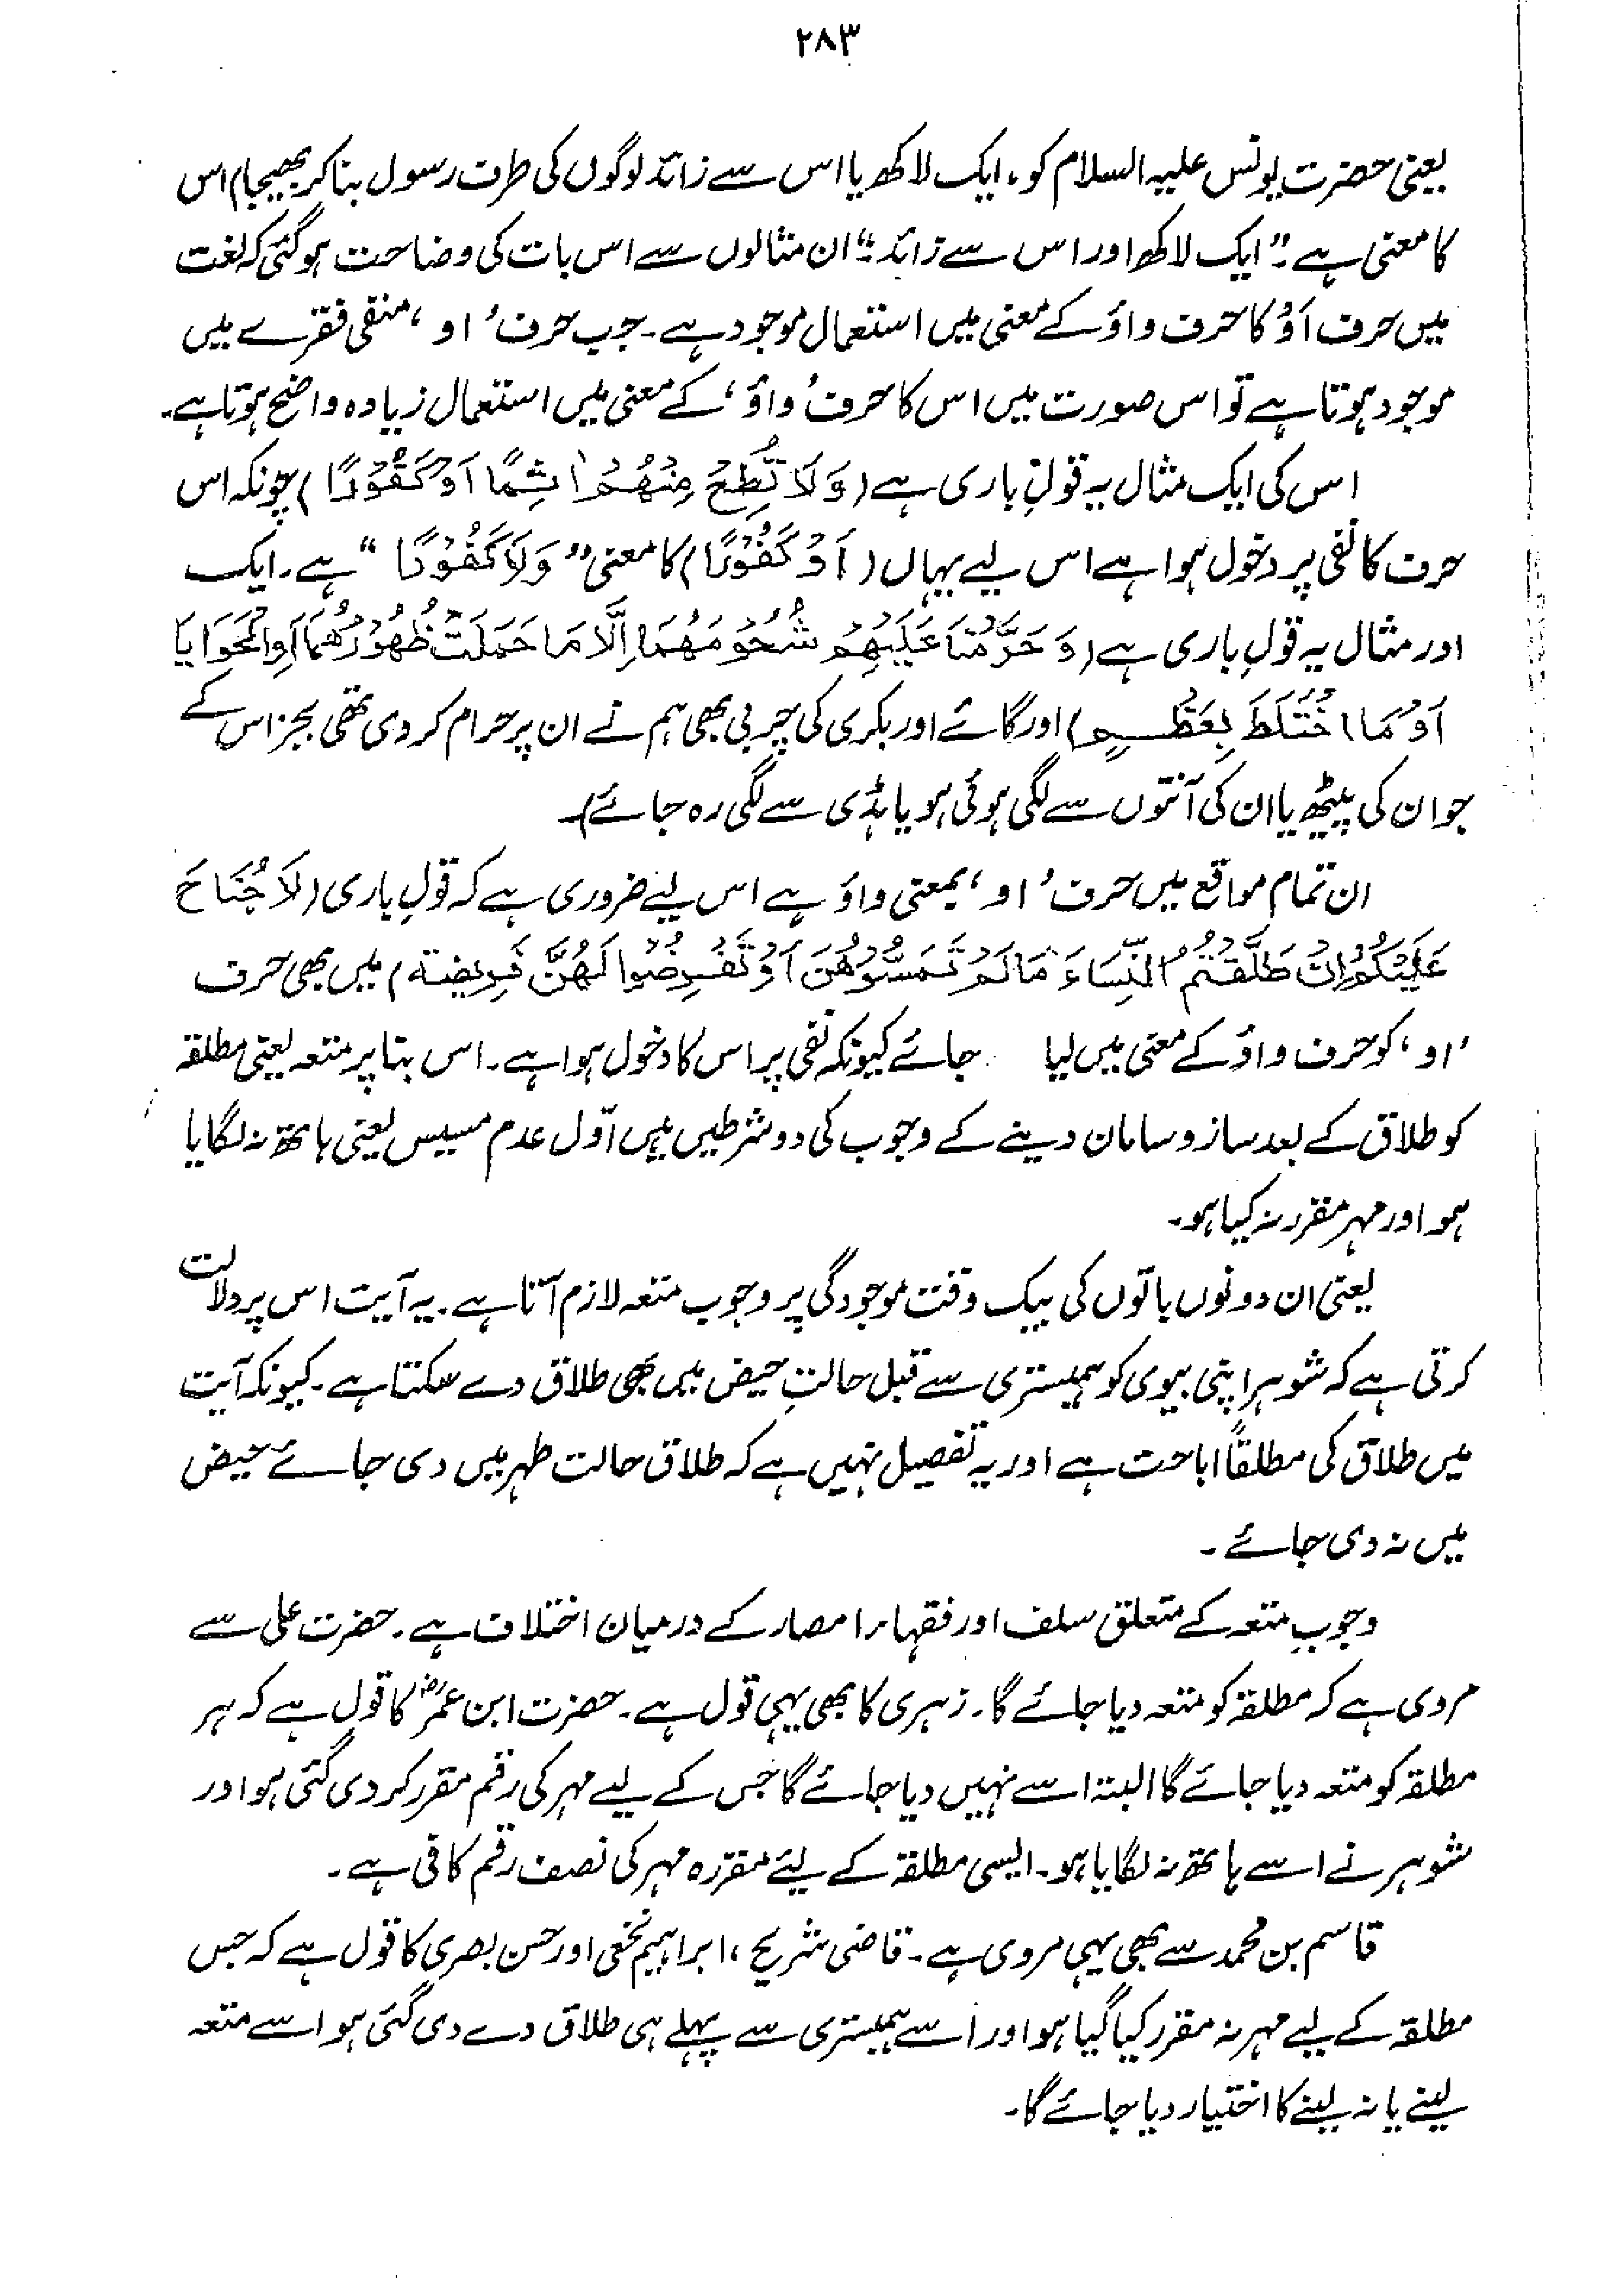 ۲۸۳
یعنی حضرت یونس علیہ السلام کو، ایک لاکھ یا اس سے زائد لوگوں کی طرف رسول بنا کر بھیجا) اس
کا معنی ہے۔" ایک لاکھ اور اس سے زائد۔" ان مثالوں سے اس بات کی وضاحت ہو گئی کہ لغت
میں حرف اَوْ کا حرف واؤ کے معنی میں استعمال موجود ہے۔ جب حرف ' او ' منفی فقرے میں
موجود ہوتا ہے تو اس صورت میں اس کا حرف ' واؤ ' کے معنی میں استعمال زیادہ واضح ہوتا ہے۔
اس کی ایک مثال یہ قولِ باری ہے (وَلَا تُطِعْ مِنْهُمْ اٰثِمًا اَوْ كَفُوْرًا) چونکہ اس
حرف کا نفی پر دخول ہوا ہے اس لیے یہاں (اَوْ كَفُوْرًا) کا معنی " وَلَا كَفُوْرًا " ہے۔ ایک
اور مثال یہ قولِ باری ہے (وَحَرَّمْنَا عَلَيْهِمْ شُحُوْمَهُمَا اِلَّا مَا حَمَلَتْ ظُهُوْرُهُمَا اَوِ الْحَوَايَا
اَوْ مَا اخْتَلَطَ بِعَظْمٍ) اور گائے اور بکری کی چربی بھی ہم نے ان پر حرام کر دی تھی بجز اس کے
جو ان کی پیٹھ یا ان کی آنتوں سے لگی ہوئی ہو یا ہڈی سے لگی رہ جائے)۔
ان تمام مواقع میں حرف ' او ' بمعنی واؤ ہے اس لیے ضروری ہے کہ قولِ باری (لَا جُنَاحَ
عَلَيْكُمْ اِنْ طَلَّقْتُمُ النِّسَاءَ مَا لَمْ تَمَسُّوْهُنَّ اَوْ تَفْرِضُوْا لَهُنَّ فَرِيْضَة) میں بھی حرف
' او ' کو حرف واؤ کے معنی میں لیا جائے کیونکہ نفی پر اس کا دخول ہوا ہے۔ اس بنا پر متعہ یعنی مطلقہ
کو طلاق کے بعد ساز و سامان دینے کے وجوب کی دو شرطیں ہیں اوّل عدم مسیس یعنی ہاتھ نہ لگایا
ہو اور مہر مقرر نہ کیا ہو۔
یعنی ان دونوں باتوں کی بیک وقت موجودگی پر وجوب متعہ لازم آتا ہے۔ یہ آیت اس پر دلالت
کرتی ہے کہ شوہر اپنی بیوی کو ہمبستری سے قبل حالتِ حیض میں بھی طلاق دے سکتا ہے۔ کیونکہ آیت
میں طلاق کی مطلقاً اباحت ہے اور یہ تفصیل نہیں ہے کہ طلاق حالت طہر میں دی جائے حیض
میں نہ دی جائے۔
وجوبِ متعہ کے متعلق سلف اور فقہاء امصار کے درمیان اختلاف ہے۔ حضرت علی سے
مروی ہے کہ مطلقہ کو متعہ دیا جائے گا۔ زہری کا بھی یہی قول ہے۔ حضرت ابن عمرؓ کا قول ہے کہ ہر
مطلقہ کو متعہ دیا جائے گا البتہ اسے نہیں دیا جائے گا جس کے لیے مہر کی رقم مقرر کر دی گئی ہو اور
شوہر نے اسے ہاتھ نہ لگایا ہو۔ ایسی مطلقہ کے لئے مقررہ مہر کی نصف رقم کافی ہے۔
قاسم بن محمد سے بھی یہی مروی ہے۔ قاضی شریح، ابراہیم نخعی اور حسن بصری کا قول ہے کہ جس
مطلقہ کے لیے مہر نہ مقرر کیا گیا ہو اور اسے ہمبستری سے پہلے ہی طلاق دے دی گئی ہو اسے متعہ
لینے یا نہ لینے کا اختیار دیا جائے گا۔